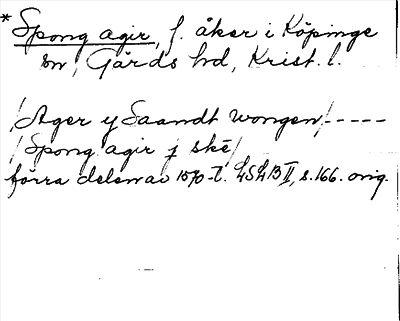 * Spong agir, f. åker i Köpinge
sn, Gärds hd, Krist. l.
/Ager y Saandt wongen/-----
/Spong agir j skē/
förra delen av 1570-t. LSLB II, s. 166. orig.